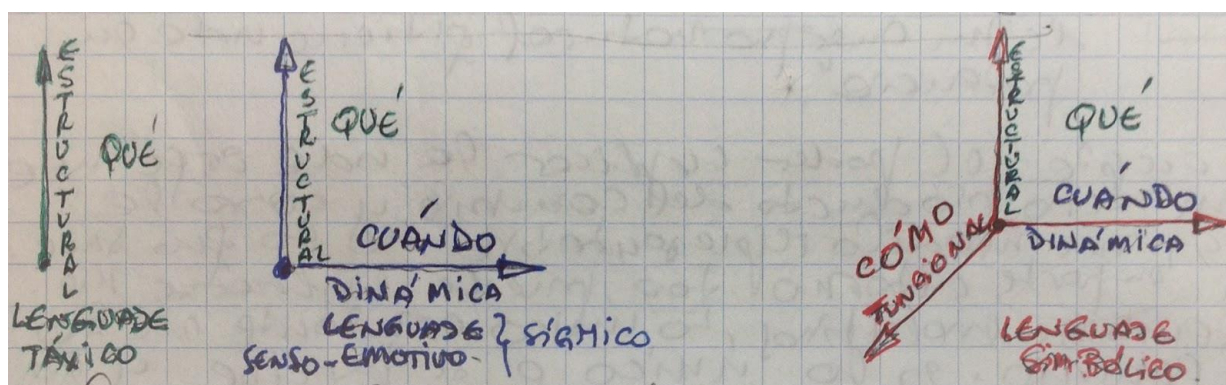 ESTRUCTURAL
QUÉ
LENGUAJE
TÁXICO
ESTRUCTURAL
QUÉ
CUÁNDO
DINÁMICA
LENGUAJE
SENSO-EMOTIVO
SÍGMICO
ESTRUCTURAL
QUÉ
CUÁNDO
DINÁMICA
CÓMO
FUNCIONAL
LENGUAJE
SimBÓLICO